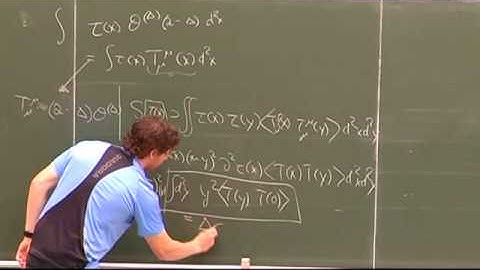 ∫ τ(x) Θ^(Δ) (2-Δ) d²x
= ∫ τ(x) T_μ^μ(x) d²x
T_μ^μ = (2-Δ) Θ^(Δ)
S[τ(x)] ⊃ ∬ τ(x) τ(y) ⟨T(x) T_μ^μ(y)⟩ d²x d²y
(x-y)² ∂² τ(x) ⟨T(x) T(y)⟩ d²x d²y
∫d²y y² ⟨T(y) T(0)⟩
= Δ